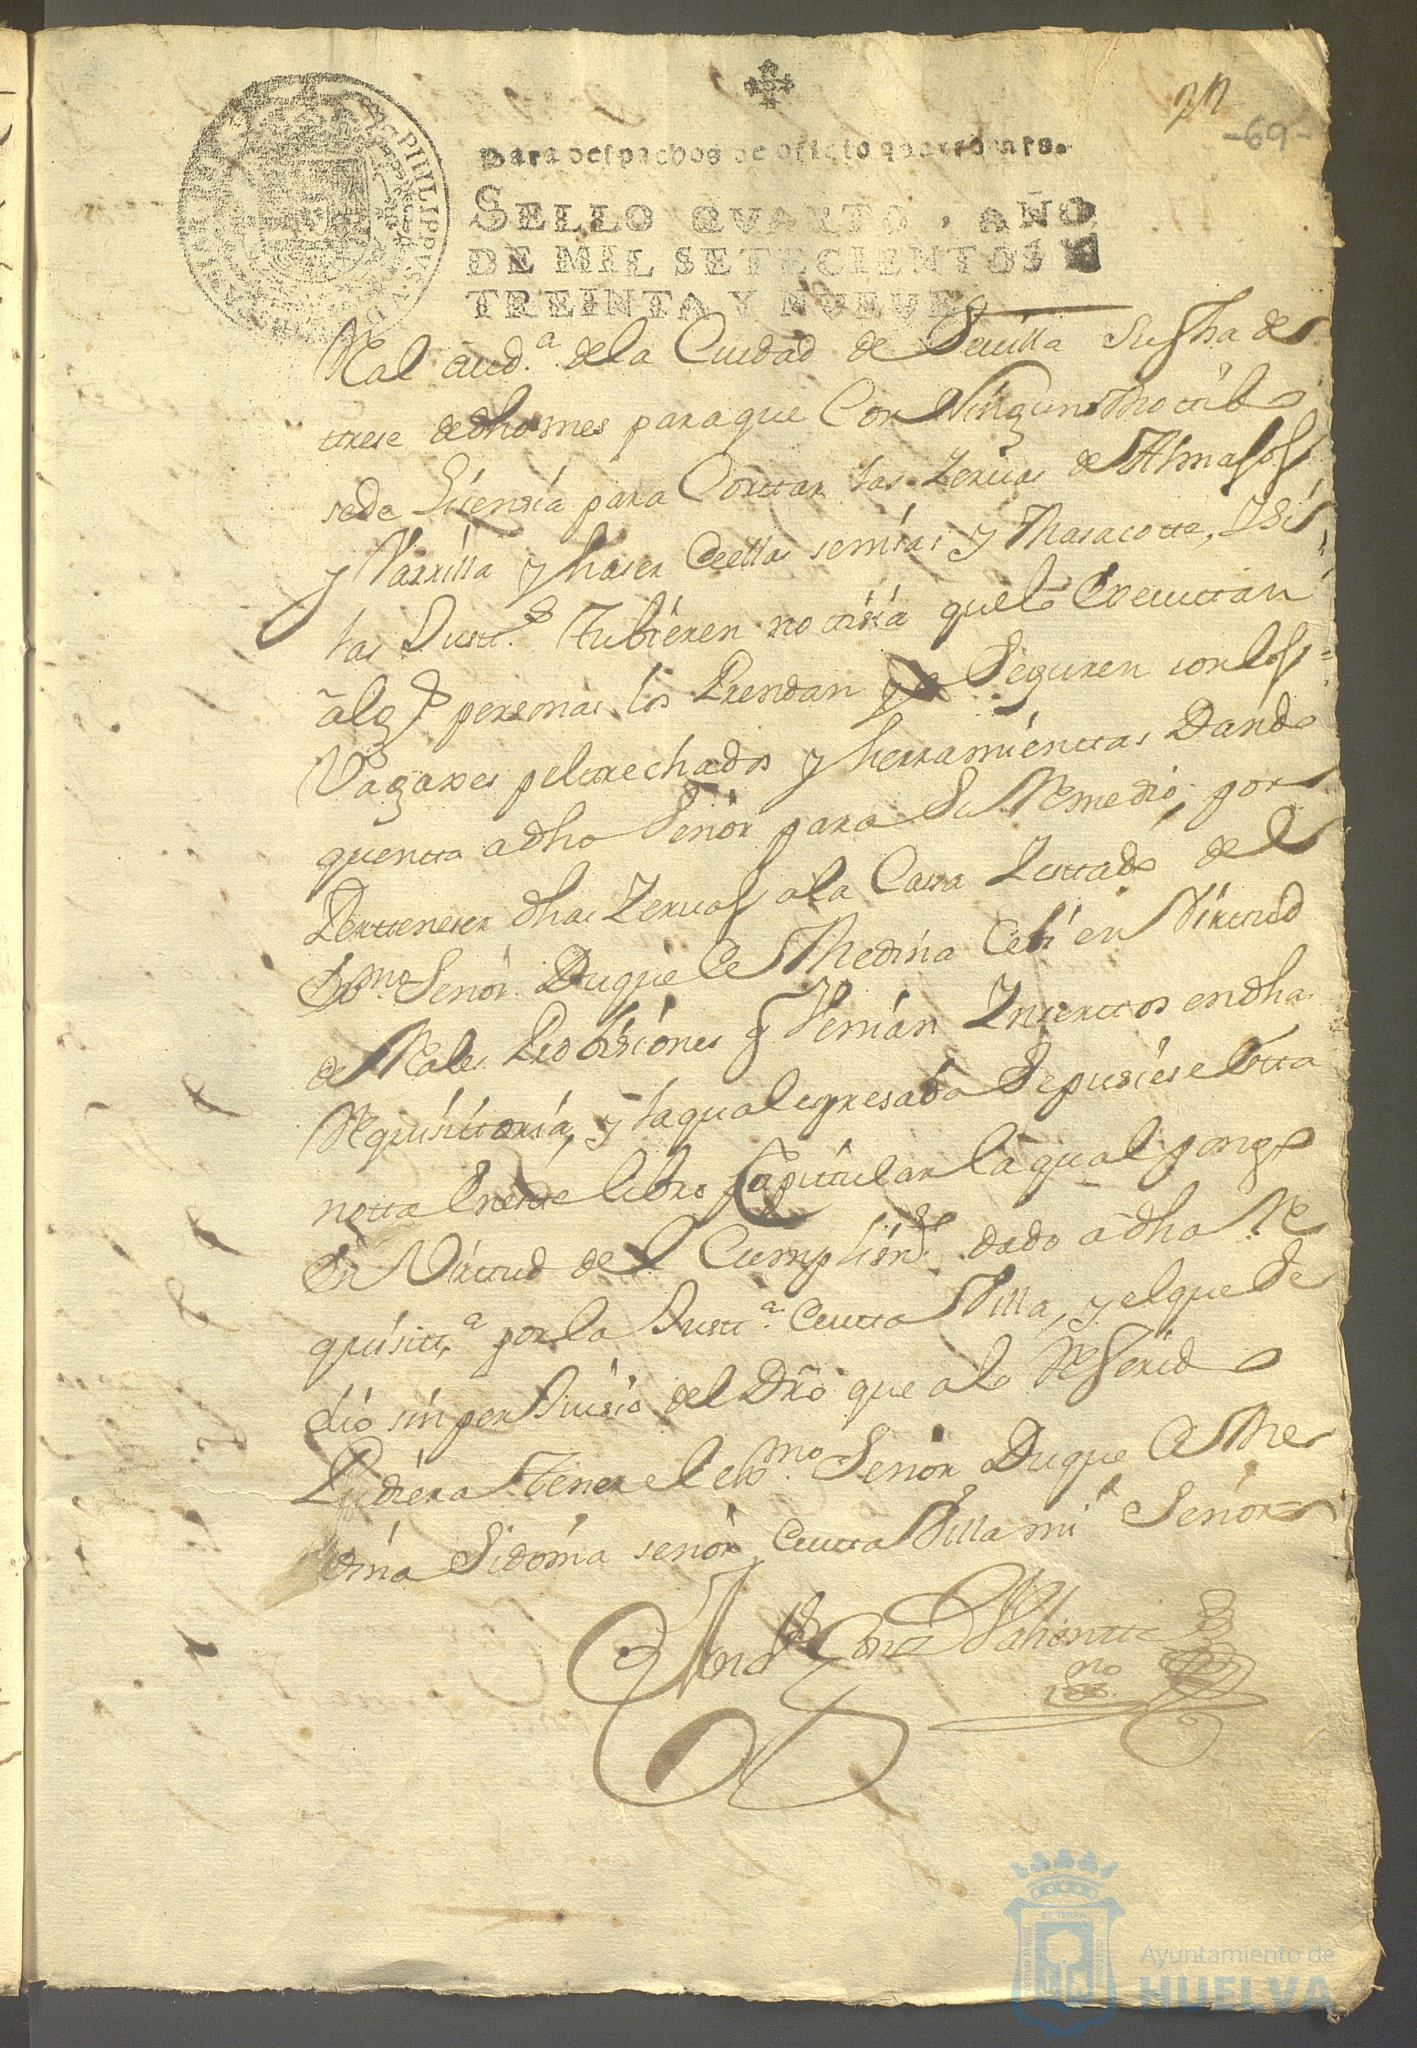 77
-69-
PHILIPPUS V D
Para despachos de oficio quatro mrs.
SELLO QVARTO, AÑO
DE MIL SETECIENTOS Y
TREINTA Y NUEVE
Rl aud.ª de la Ciudad de Sevilla su fha de
trese de dho mes para que Con Ningun Motibo
se de Lisensia para Corttar las Yervas de Almajos
y Varrilla y haser de ellas senisas y Masacotte, Y si
las Justt.s tubieren notisia que lo Executtan
alg.s personas los Prendan y a Seguren con los
Vagaxes peltrechados y herramienttas Dando
quentta a dho Señor para Su Remedio, por
Pertteneser dhas Yervas a la Casa Y esttado del
Exmo. Señor Duque de Medina Celi en Virttud
de Rales Provisiones q Venian Ynserttos en dha
Requisittoria, y la qual egresada Se pusiese Esta
notta En este libro Capittular la qual pongo
En Virttud del Cumplim.to dado a dha Re
quisitt.ª por la Justt.ª de esta Villa, y el que Se
dio sin perJuisio del Dro que a lo Referido
Pudiera Tener el exmo. Señor Duque de Me
dina Sidonia señor de esta Villa mi Señor=
Valientte
no
Ayuntamiento de
HUELVA